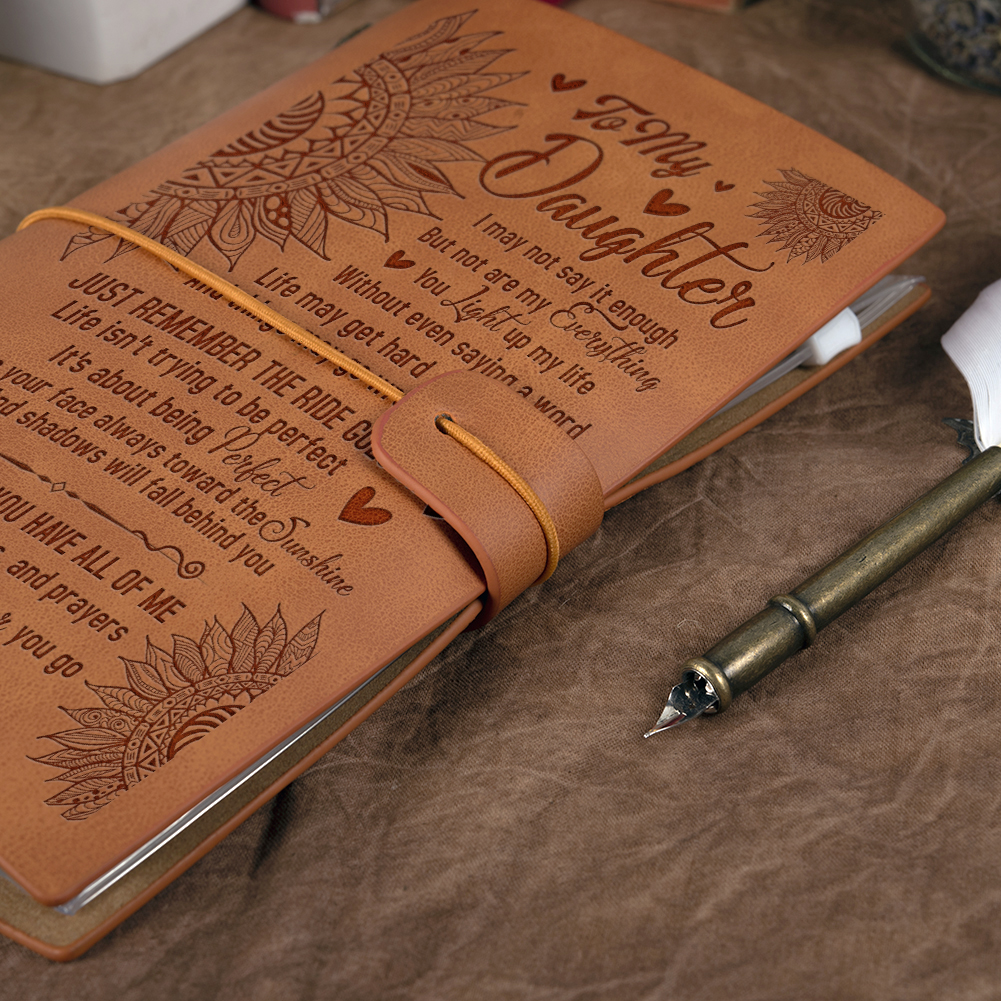 To My
Daughter
I may not say it enough
But not are my Everything
You Light up my life
Without even saying a word
Life may get hard
JUST REMEMBER THE RIDE
Life isn't trying to be perfect
It's about being Perfect
your face always toward the Sunshine
shadows will fall behind you
YOU HAVE ALL OF ME
and prayers
you go